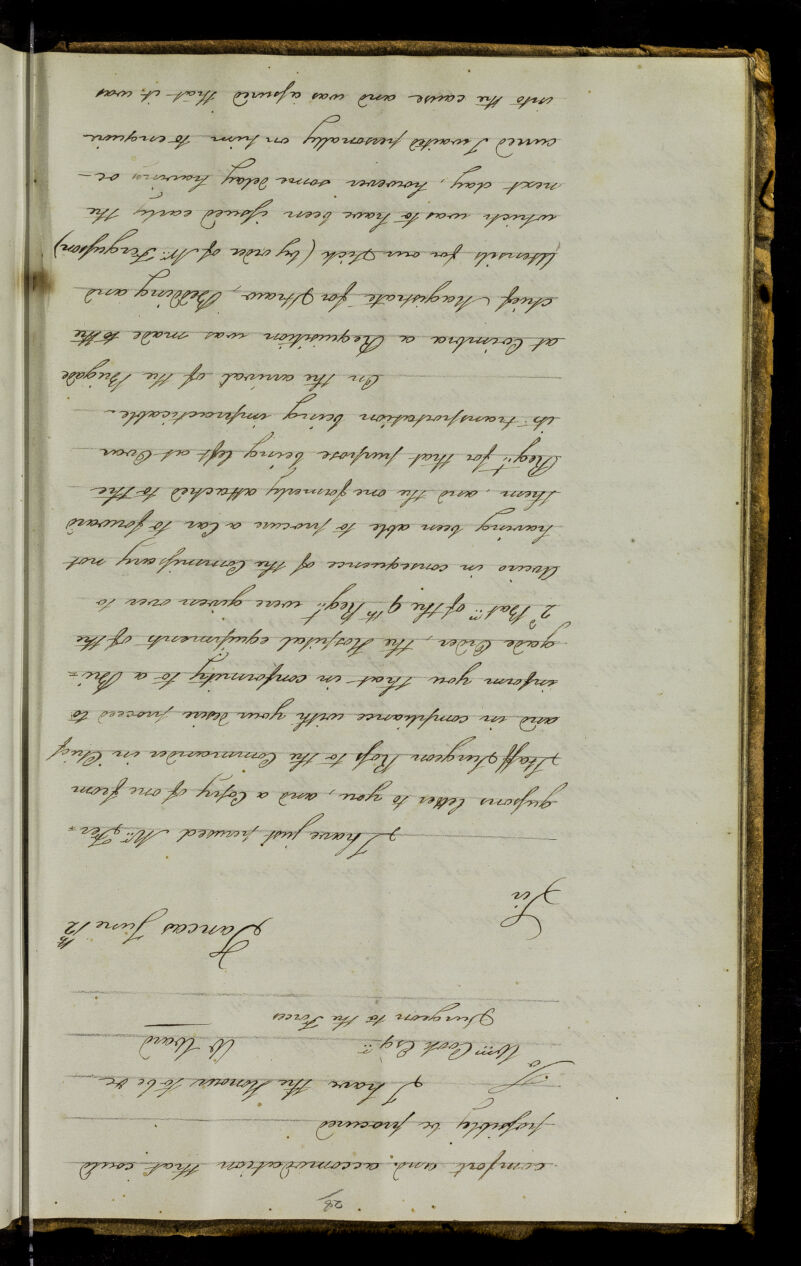 28
comfort and accomodation that could
possibly be procured
I have the Honour to be &c
To
Wm Cook Esqr W Ward
Surgeon to the Forces
Sancas June 12th
Sir
I have just perused Mr. Fer=
gusons letter to you, and a Copy of one from
Staff Surgeon Ross to the Commander in Chief
and in compliance with your desire proceed to
inform you that in conformity to a Bri=
gade Order, the Hospital equipments of the
2d Batn. of the 9th Regt. were given over to
Aveiro in consequence of the Commissary not
having been able to procure a Car to forward
them, and the one formerly attached to the
Regt. for that purpose being left at Ovar
its transportation being impracticable.
On the arrival of the Brigade
at Coimbra a Requisition was made to the
chief Magistrate for Straw, Bedding and
Utensils for our Sick (by order of Mr. Fergusson)
which was to have been issued early the
next day, however some delay having oc-
cured I waited personally on him to enquire
into the cause and was assured that it was